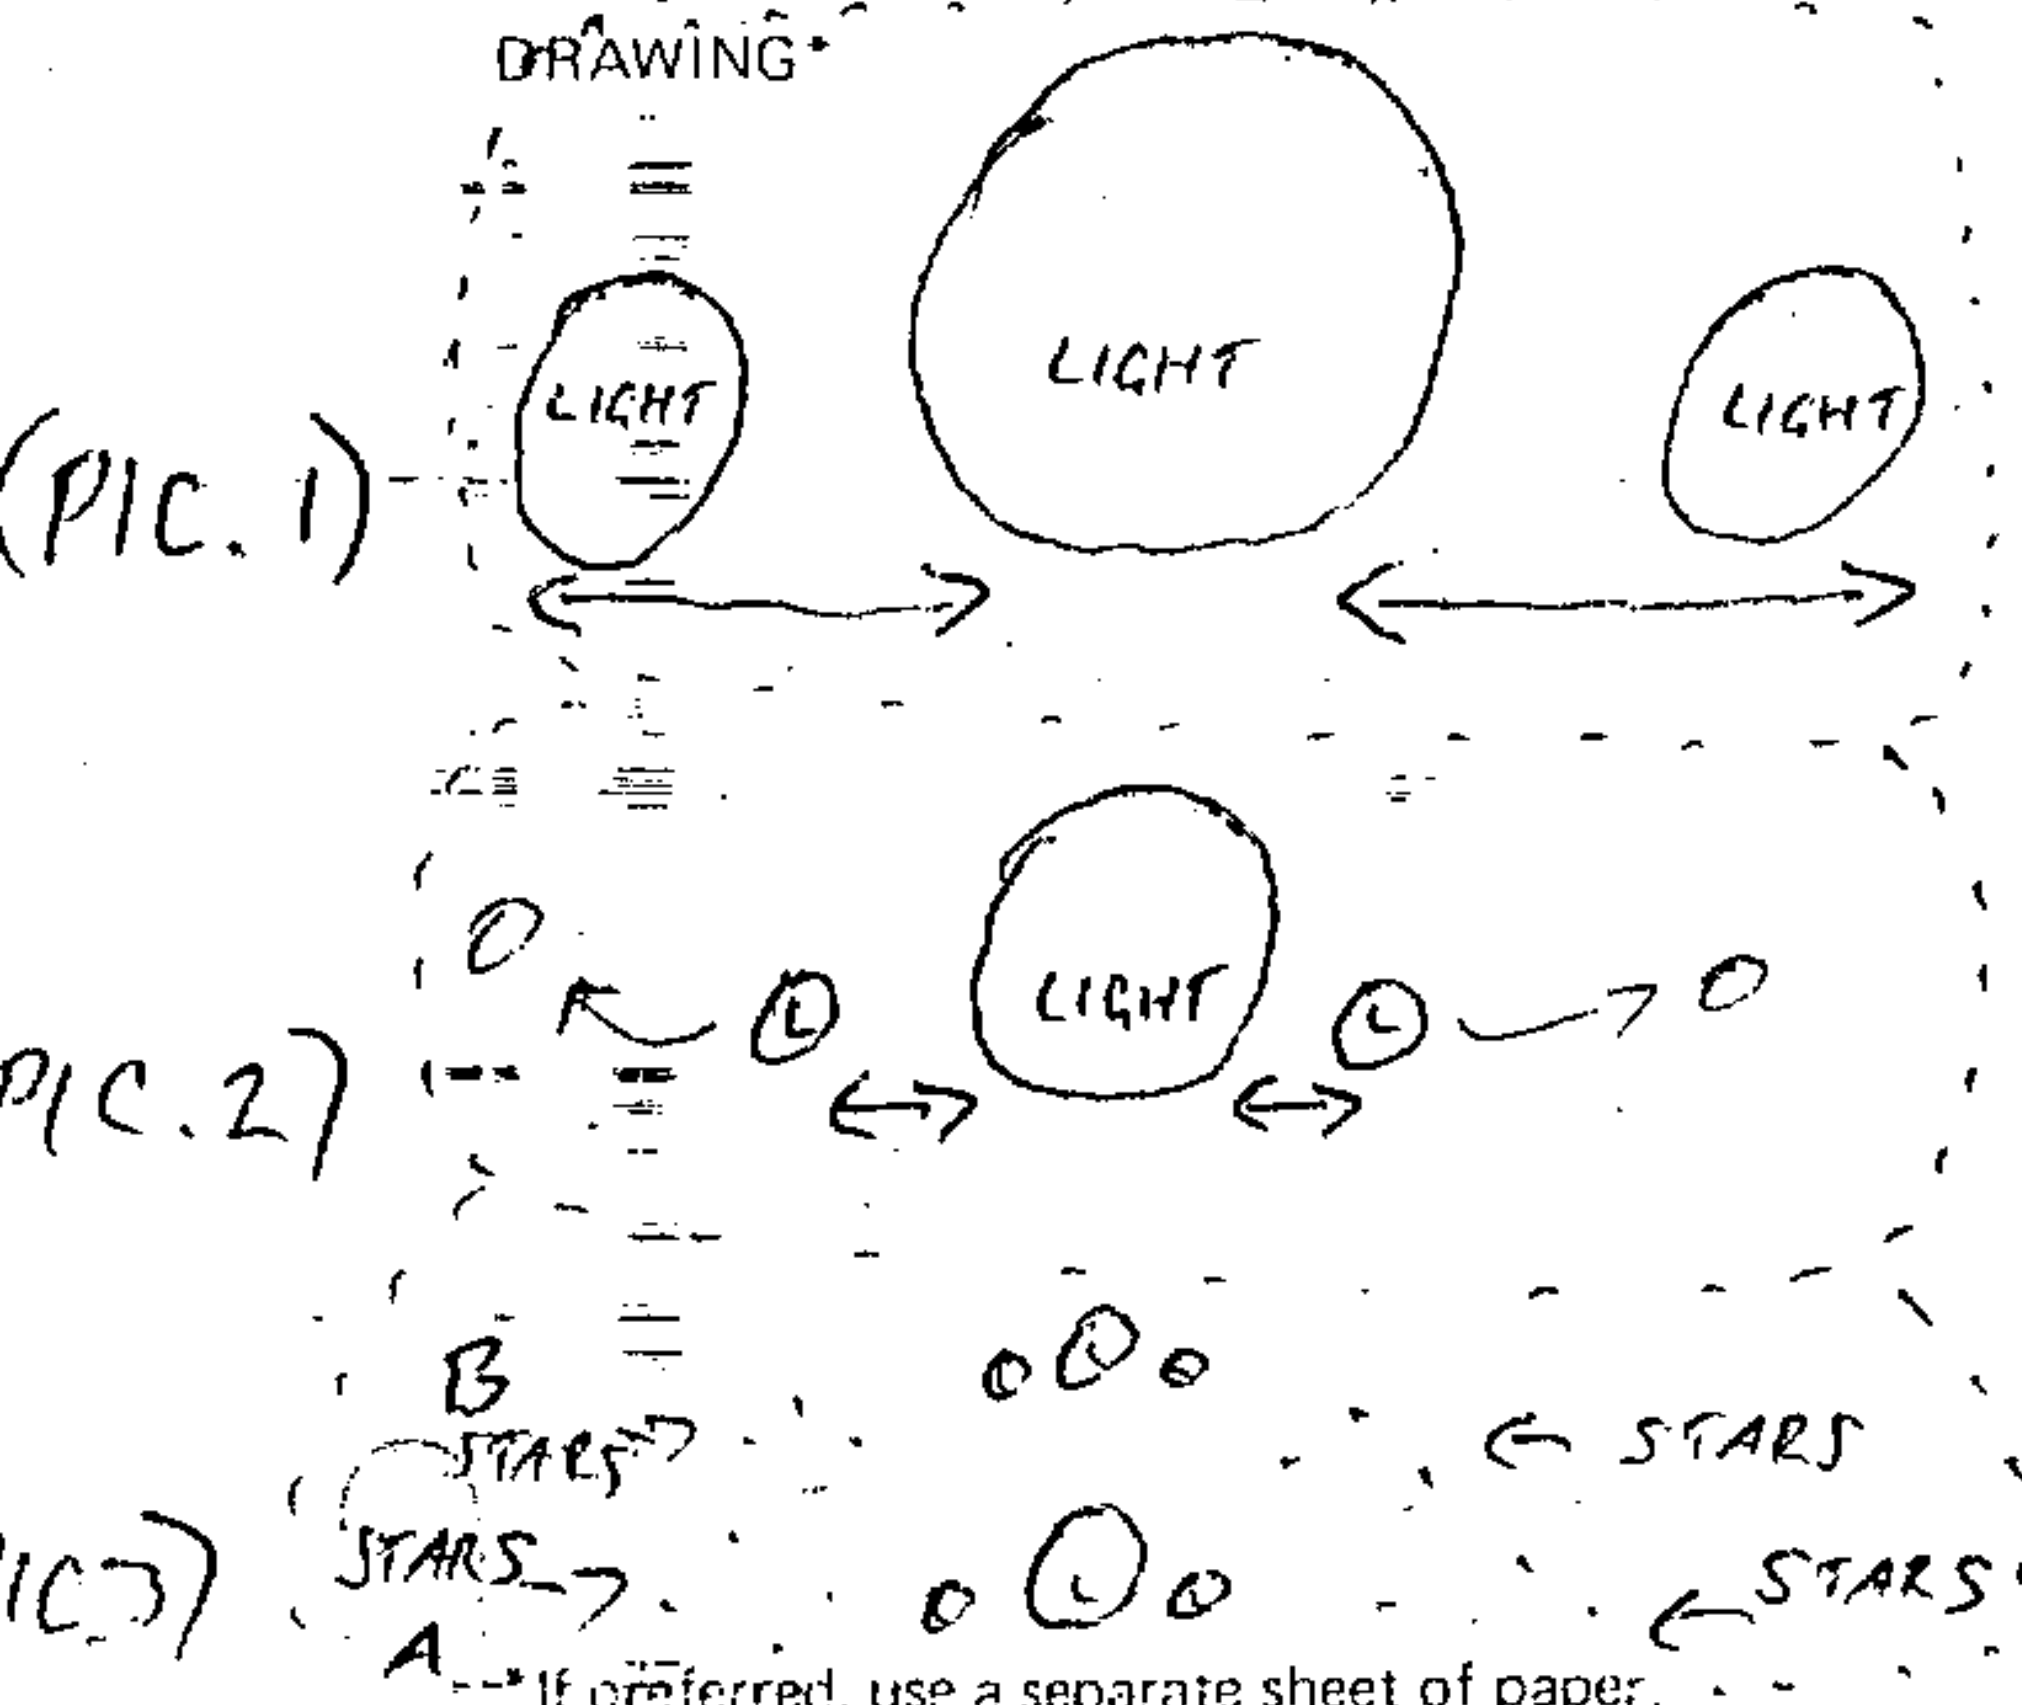 DRAWING*
LIGHT LIGHT LIGHT
(PIC. 1)
LIGHT
L L
PIC. 2)
B L
STARS STARS
STARS L STARS
A
*If preferred, use a separate sheet of paper.